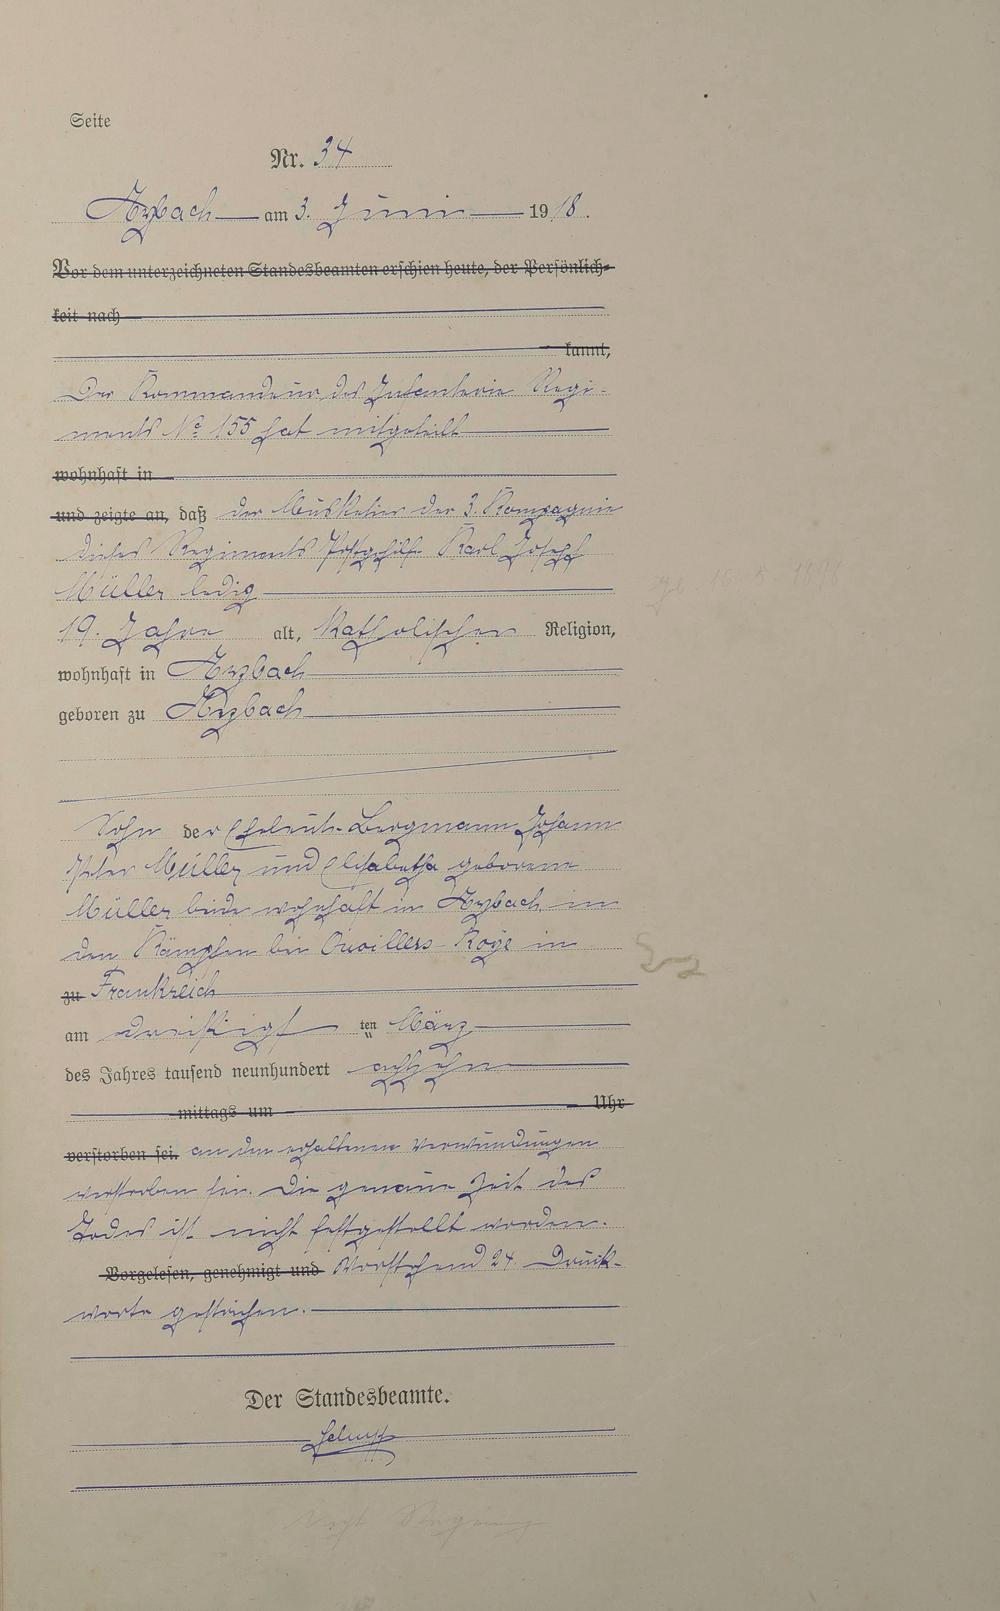 Seite
Nr. 34
Arzbach am 3. Juni 1918.
Vor dem unterzeichneten Standesbeamten erschien heute, der Persönlich-
keit nach
kannt,
Der Kommandeur des Infanterie Regi-
ments No 155 hat mitgeteilt
wohnhaft in
und zeigte an, daß der Musketier der 3. Kompagnie
dieses Regiments Postgehilfe Karl Joseph
Müller ledig
19. Jahre alt, katholischer Religion,
wohnhaft in Arzbach
geboren zu Arzbach
Sohn der Eheleute Bergmann Johann
Peter Müller und Elisabetha geborene
Müller beide wohnhaft in Arzbach, in
den Kämpfen bei Orvillers-Roye in
zu Frankreich
am dreißigsten März
des Jahres tausend neunhundert achtzehn
mittags um Uhr
verstorben sei. an den erhaltenen Verwundungen
verstorben sei. Die genaue Zeit des
Todes ist nicht festgestellt worden.
Vorgelesen, genehmigt und Vorstehend 24. Druck-
worte gestrichen.
Der Standesbeamte.